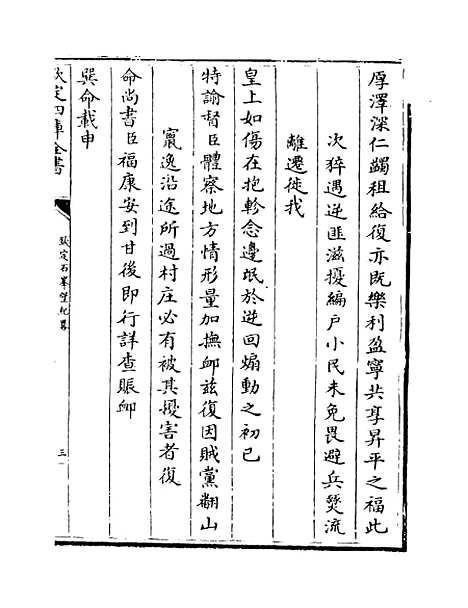 厚澤深仁蠲租給復亦既樂利盈寧共享昇平之福此
次猝遇逆匪滋擾編户小民未免畏避兵燹流
離遷徙我
皇上如傷在抱軫念邊氓於逆回煽動之初已
特諭督臣體察地方情形量加撫卹兹復因賊黨翻山
竄逸沿途所過村庄必有被其擾害者復
命尚書臣福康安到甘後即行詳查賑卹
巽命載申
欽定四庫全書
欽定石峯堡紀畧
三